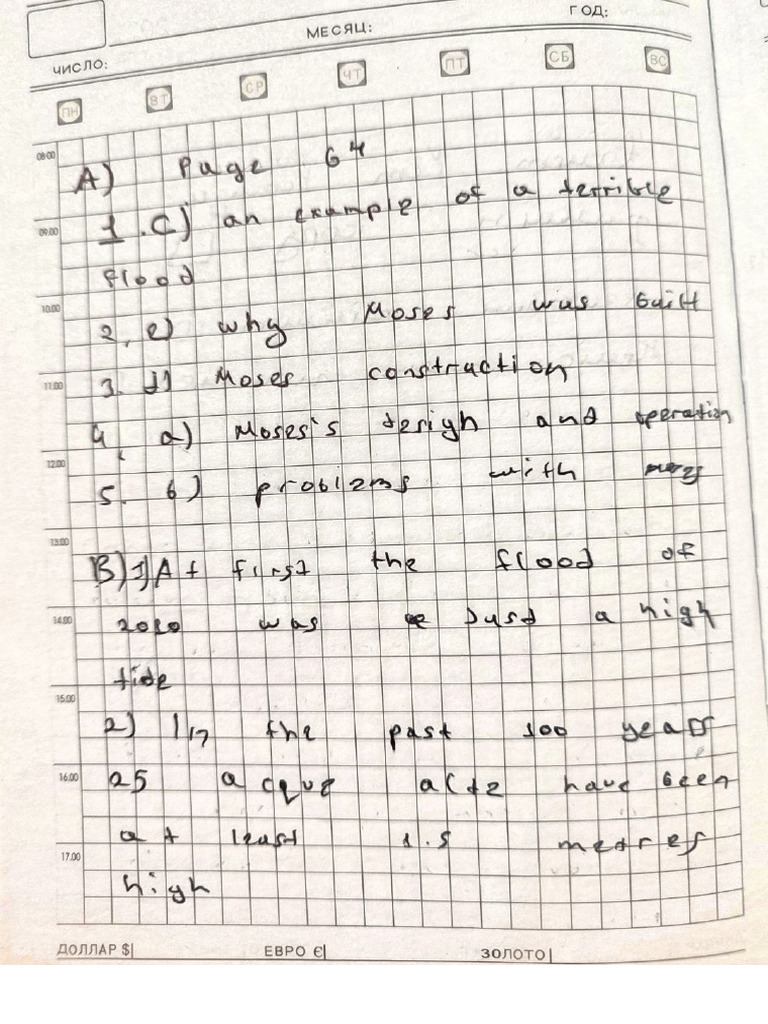 ГОД:
МЕСЯЦ:
ЧИСЛО:
ПН ВТ СР ЧТ ПТ СБ ВС
08:00
A) Page 64
09.00
1. C) an example of a terrible
flood
10.00
2, e) why Moses was built
11.00
3. d) Moses construction
4, a) Moses's desigh and operation
12.00
5. b) problems with
13.00
B) 1) At first the flood of
14.00
2010 was just a high
tide
15.00
2) In the past 100 years
16.00
25 acque alte have been
at least 1.5 metres
17.00
high
ДОЛЛАР $| ЕВРО €| ЗОЛОТО|